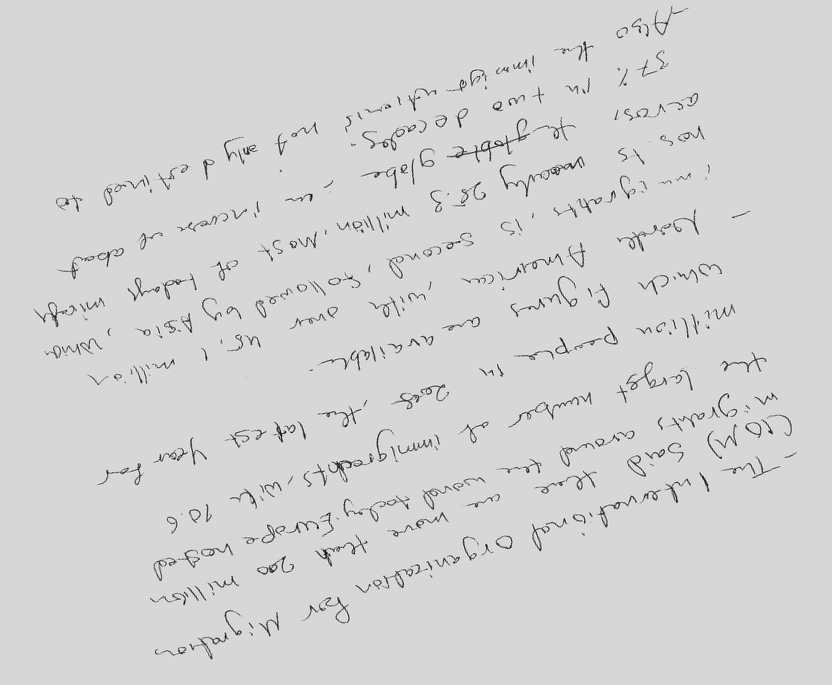 - The International Organization for Migration
(IOM) said there are more than 200 million
migrants around the world today. Europe hosted
the larget number of immigrants, with 70.6
million people in 2005, the latest year for
which figures are available.
- North American, with over 45.1 million
immigrants, is second, followed by Asia, which
hosts nearly 25.3 million. Most of todays
across the globe, an increase of about
37% in two decades.
Also the immigration is not only destined to